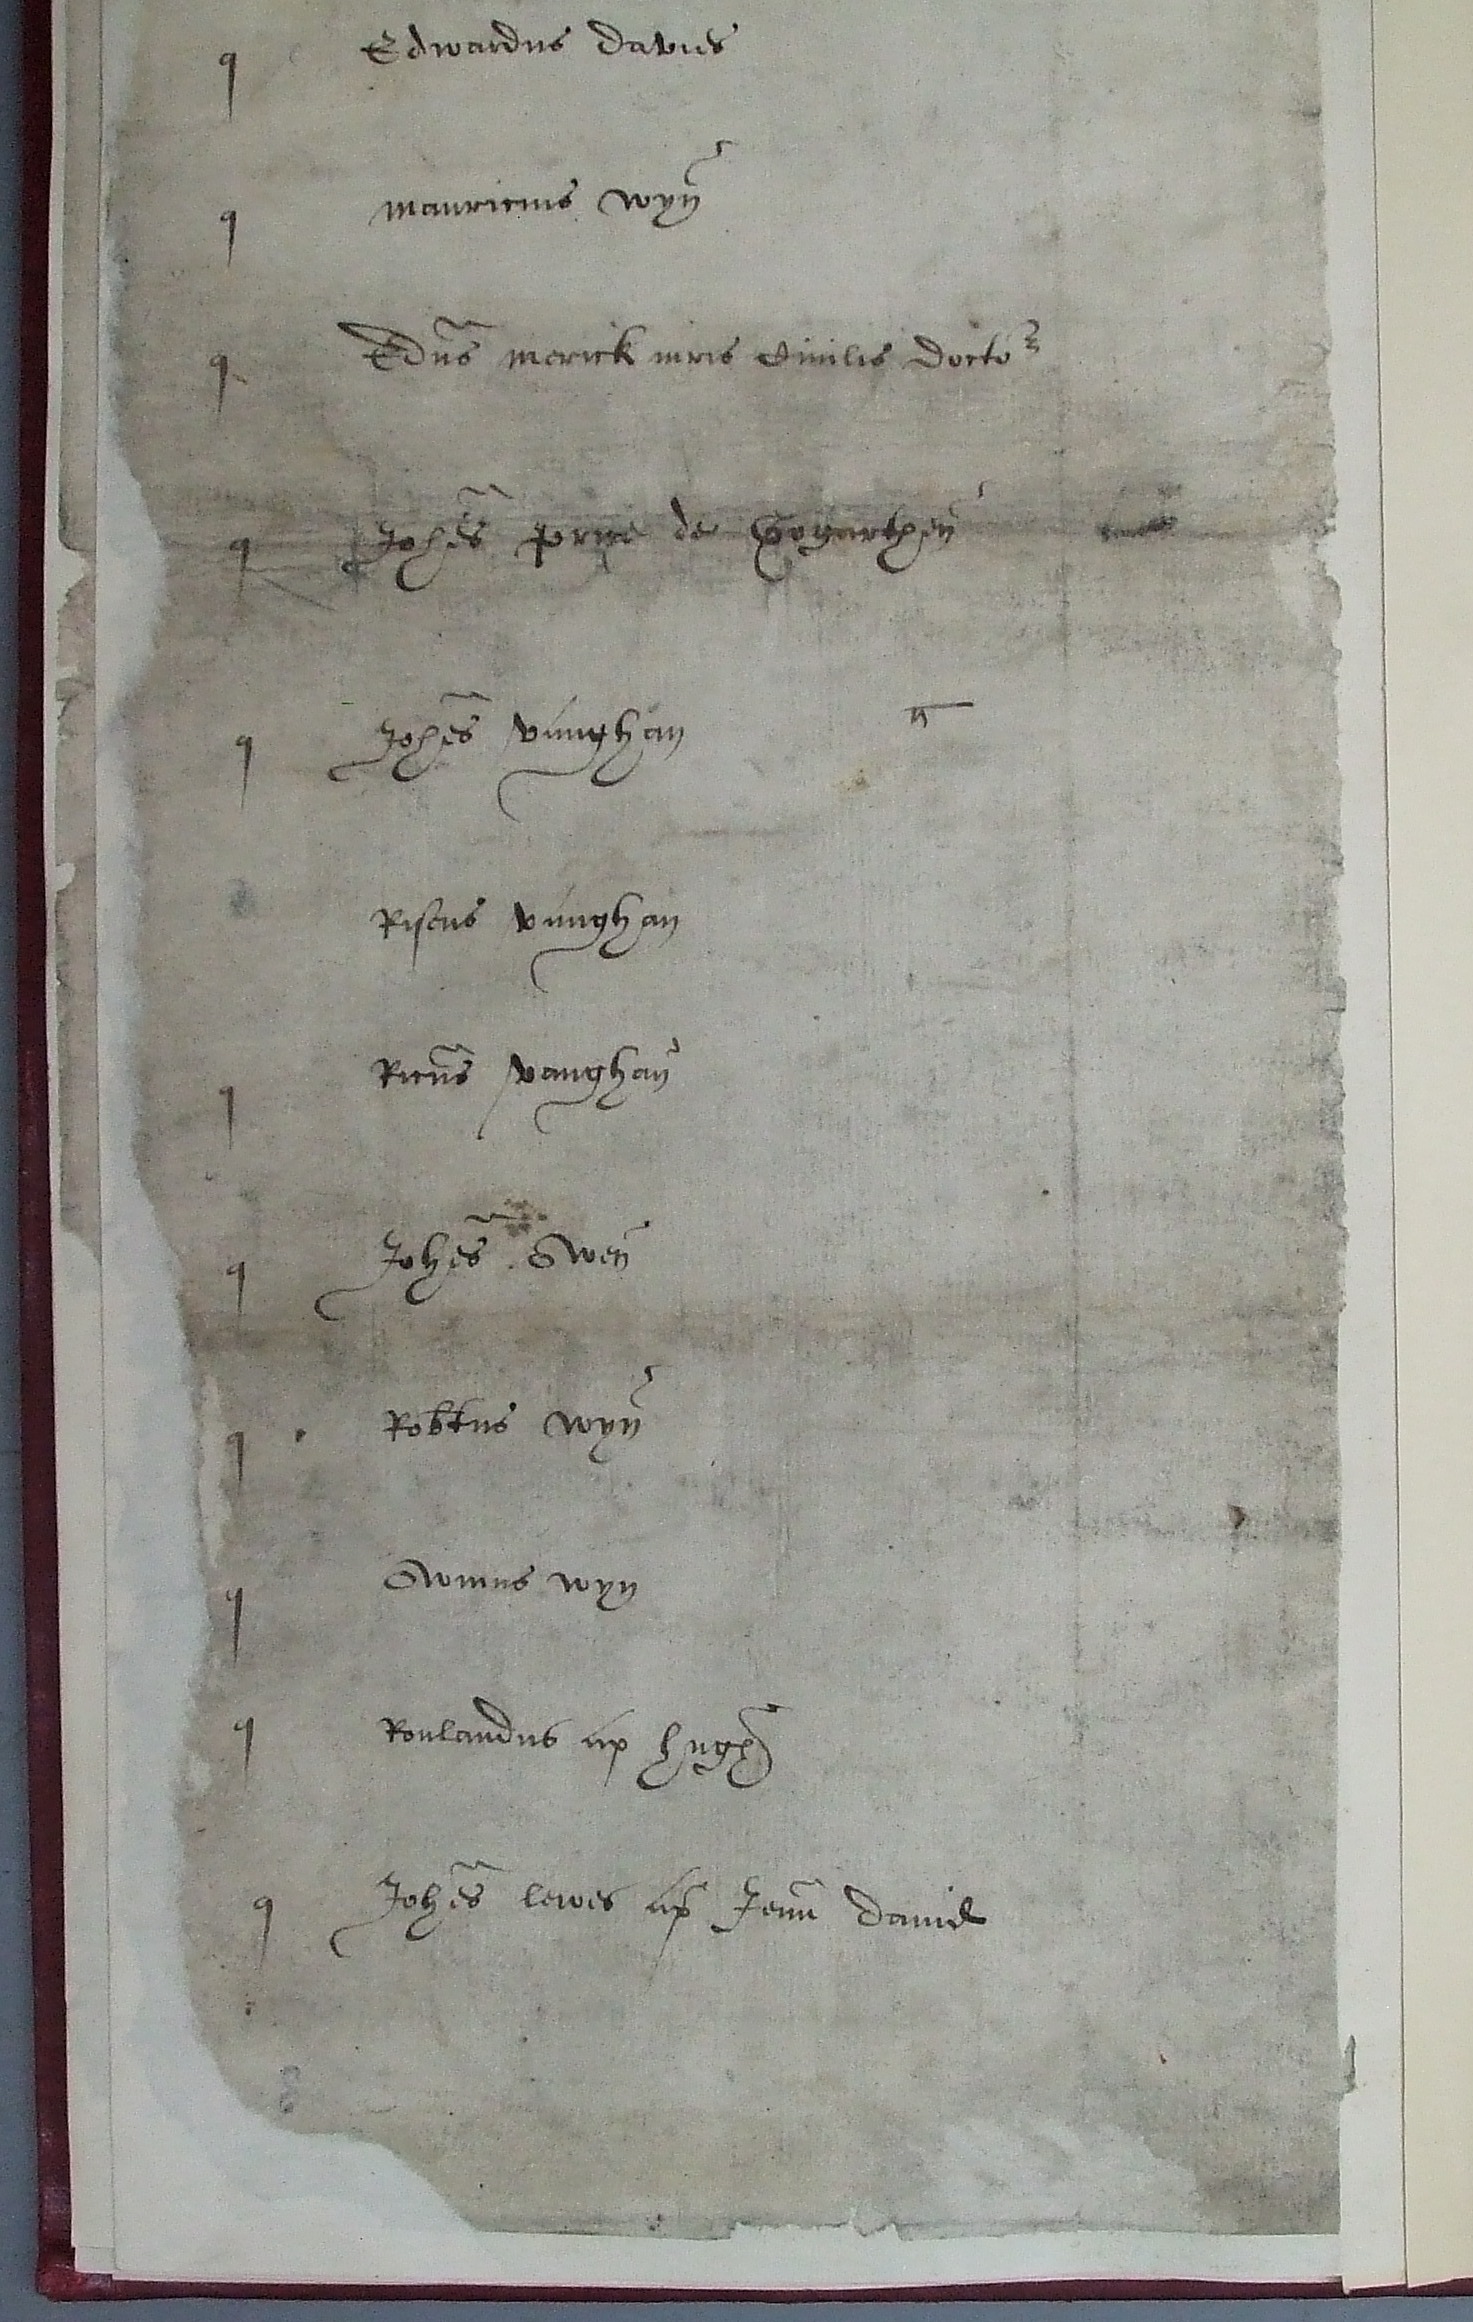 q Edwardus Davies
q mauricius wyn̄
q Edūs merick iuris Ciuilis docto
q Joħes price de Gogarthen̄
q Joħes vaughan
Riseus vaughan
q Ricūs vaughan̄
q Joħes Owen̄
q Robtus wyn̄
q Owinus wyn
q Roulandus ap hugh
q Joħes lewes ap Jeun̄ dauid